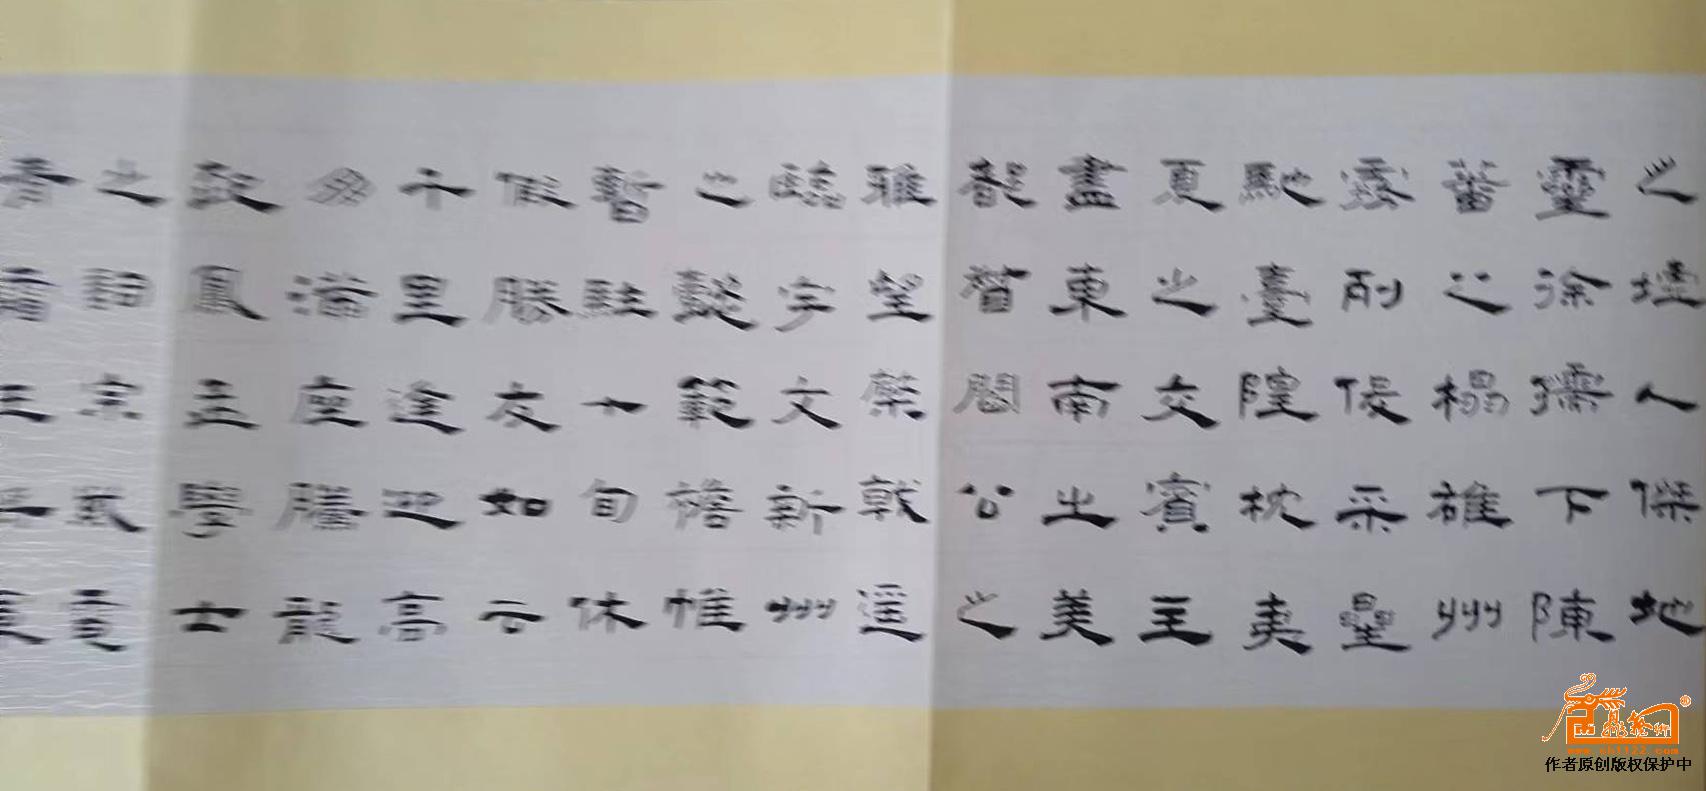 之墟人傑地
靈徐孺下陳
蕃之榻雄州
霧列俊采星
馳臺隍枕夷
夏之交賓主
盡東南之美
都督閻公之
雅望棨戟遥
臨宇文新州
之懿範襜帷
暫駐十旬休
假勝友如云
千里逢迎高
朋滿座騰龍
起鳳孟學士
之詞宗紫電
青霜王將軍
www.sh1122.com
作者原创版权保护中